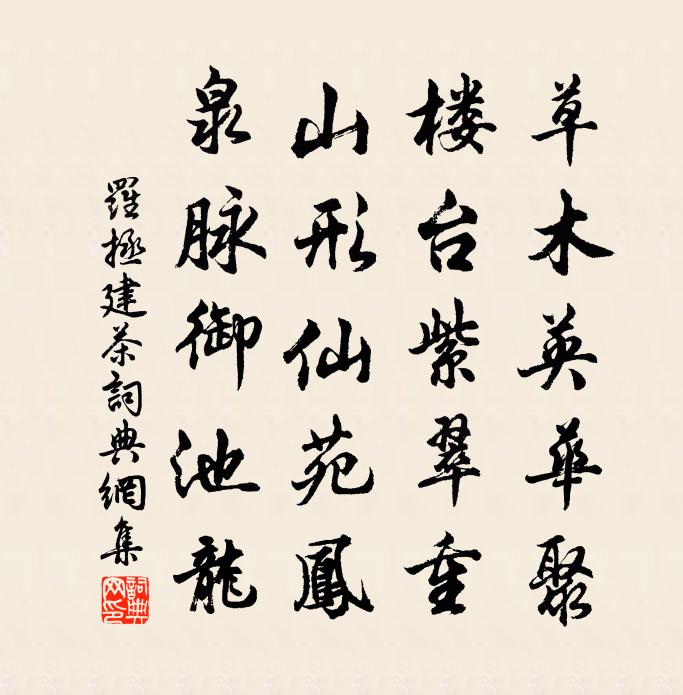 草木英華聚
楼台紫翠重
山形仙苑鳳
泉脉御池龍
羅拯建茶詞典網集
詞典网印